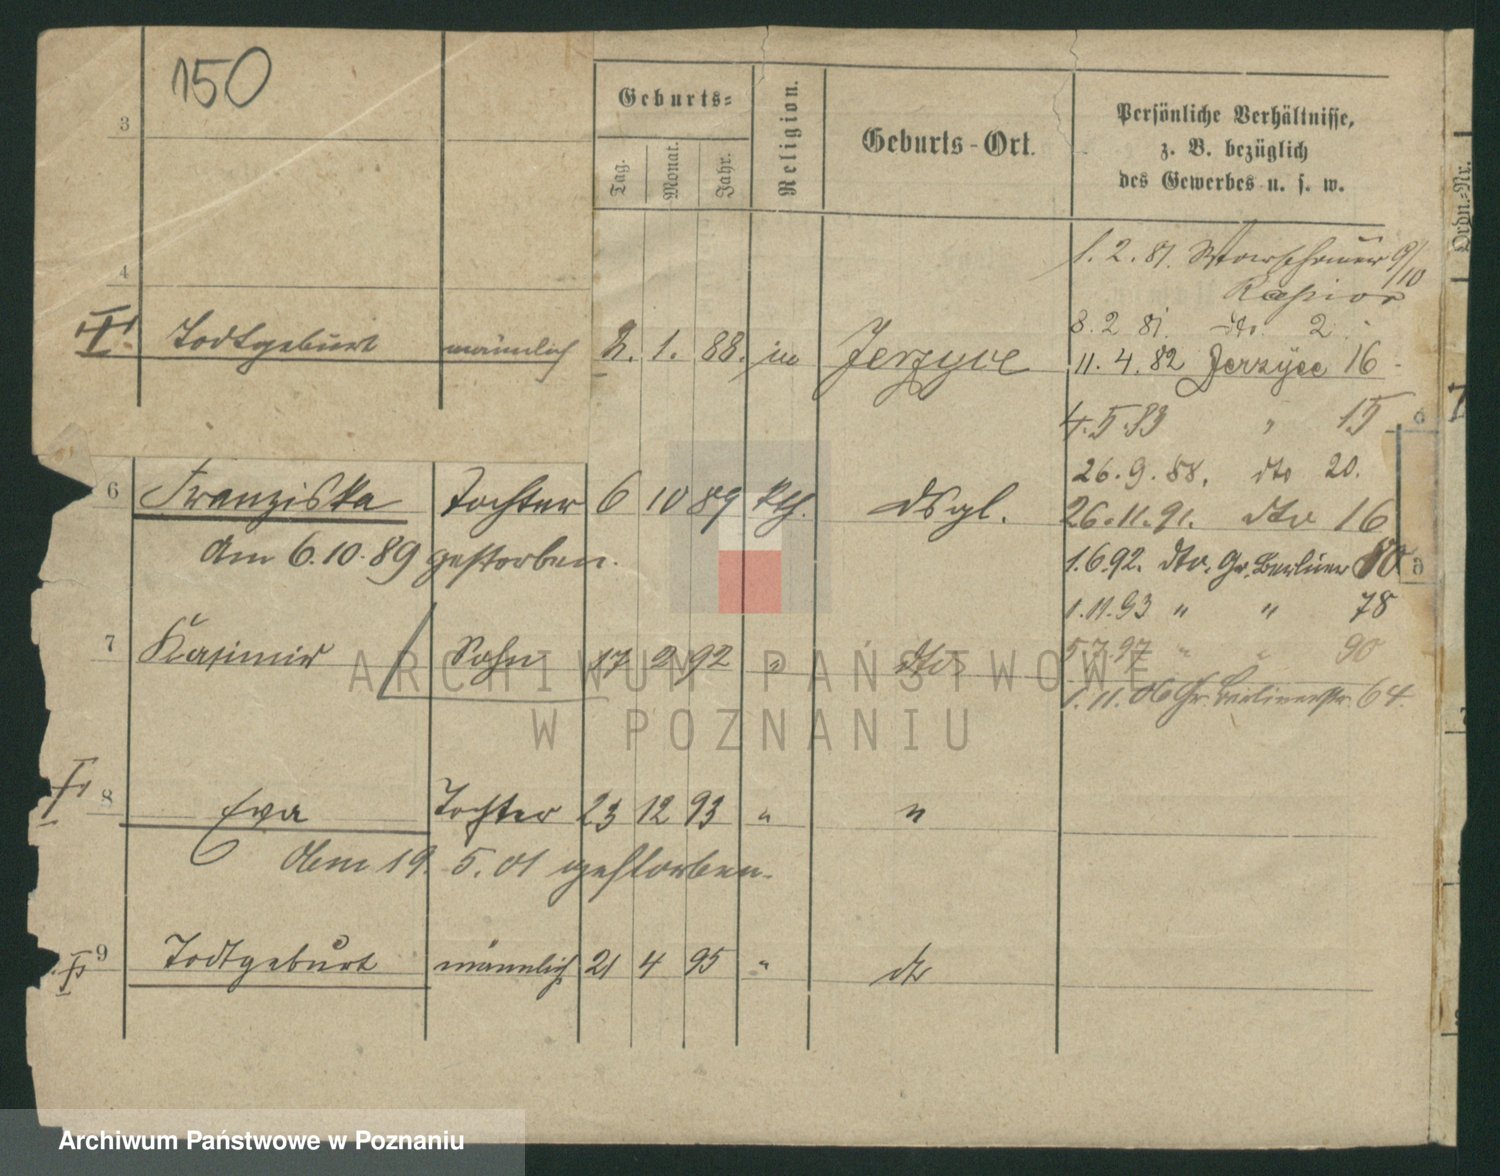 150
Geburts=
Tag.
Monat.
Jahr.
Religion.
Geburts-Ort.
Persönliche Verhältnisse,
z. B. bezüglich
des Gewerbes u. s. w.
Ordn.=Nr.
3
4
1. 2. 81. 9/10
8. 2 81. dto. 2
Todtgeburt männlich 2. 1. 88. Jerzyce
11. 4. 82 Jerzyce 16
4. 5. 83 " 15
26. 9. 88. dto 20.
6 Franziska Tochter 6 10 89 kth. dsgl.
26. 11. 91. dto 16
Am 6. 10. 89 gestorben.
1. 6. 92. dto. Gr. Berliner 80
1. 11. 93 " " 78
7 Kasimir Sohn 17 2 92 " dto
5. 7. 97 " " 90
1. 11. 06 Gr. Berlinerstr. 64.
8 Eva Tochter 23 12 93 " "
Am 19. 5. 01 gestorben.
9 Todtgeburt männlich 21 4 95 " dto
ARCHIWUM PAŃSTWOWE
W POZNANIU
Archiwum Państwowe w Poznaniu